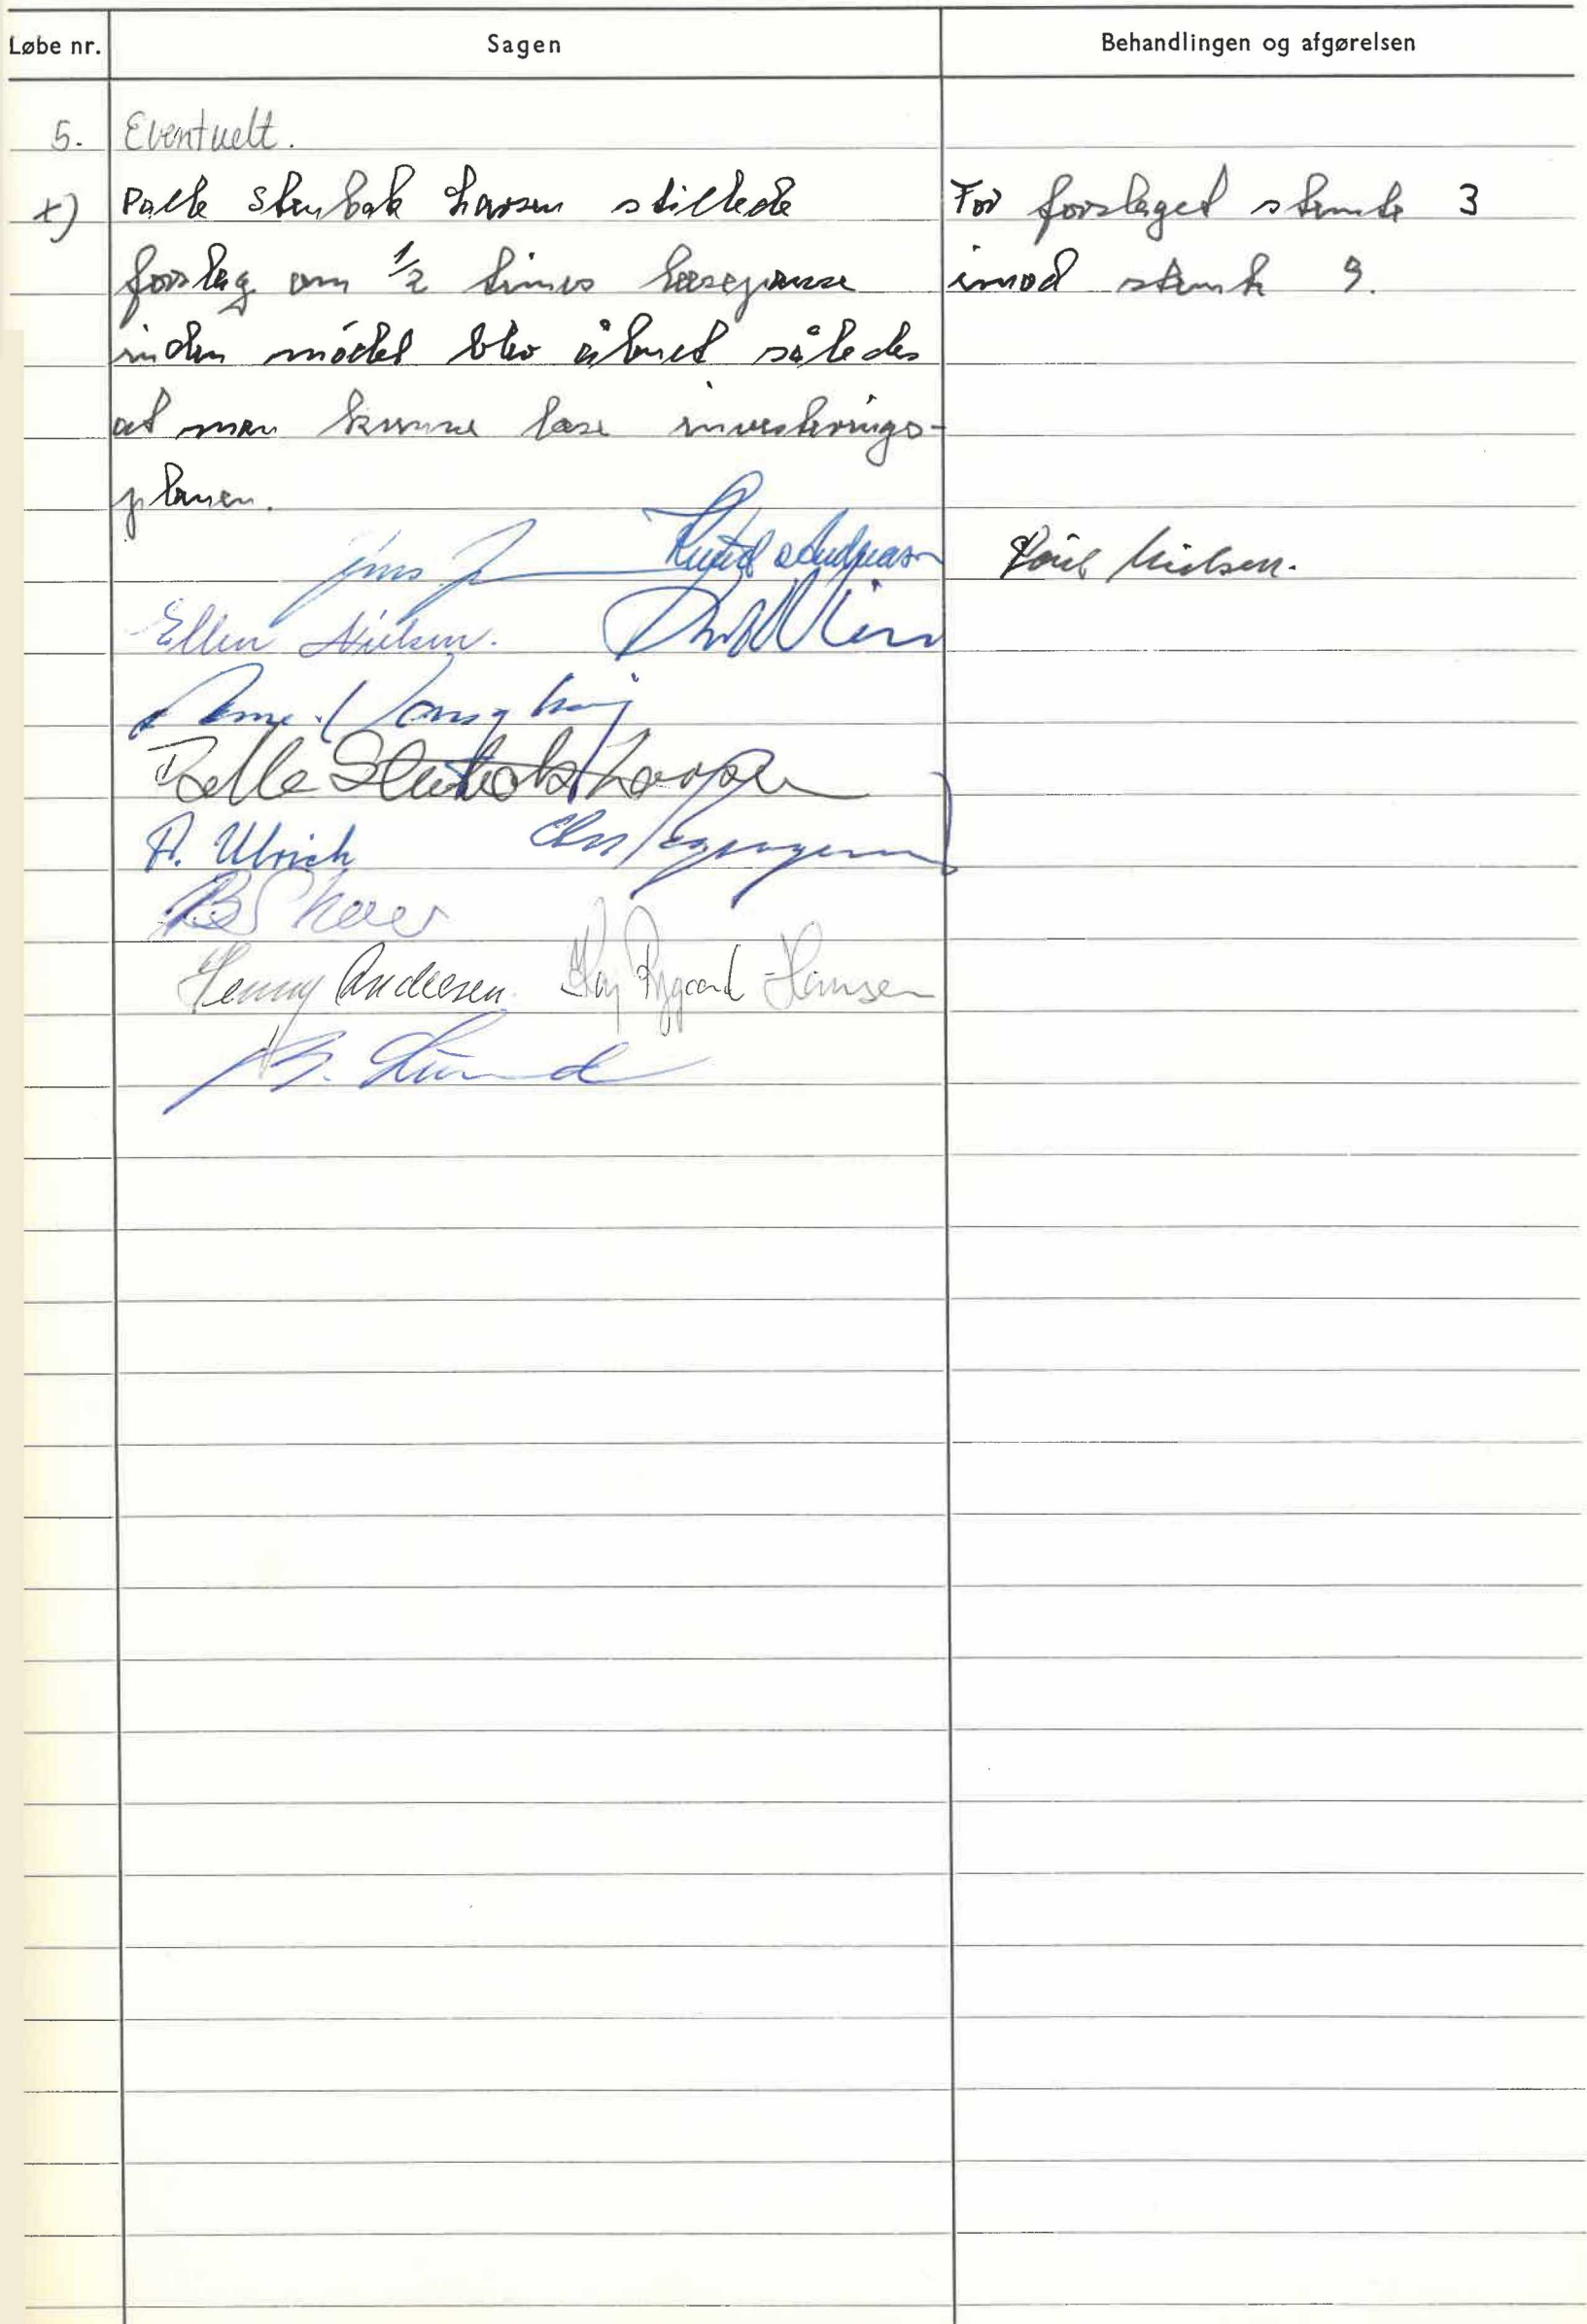 Løbe nr. Sagen Behandlingen og afgørelsen
5. Eventuelt.
x) Palle Stenbak Larsen stillede
forslag om 1/2 times læsepause
inden mødet blev åbnet således
at man kunne læse investerings-
planen.
For forslaget stemte 3
imod stemte 9.
Jens Knud Andreasen
Poul Nielsen.
Ellen Nielsen.
Palle Stenbak Larsen
A. Ulrich Chr. Jørgensen
B Skov
Henny Andersen. Kaj Rygaard Hansen
B. Lund